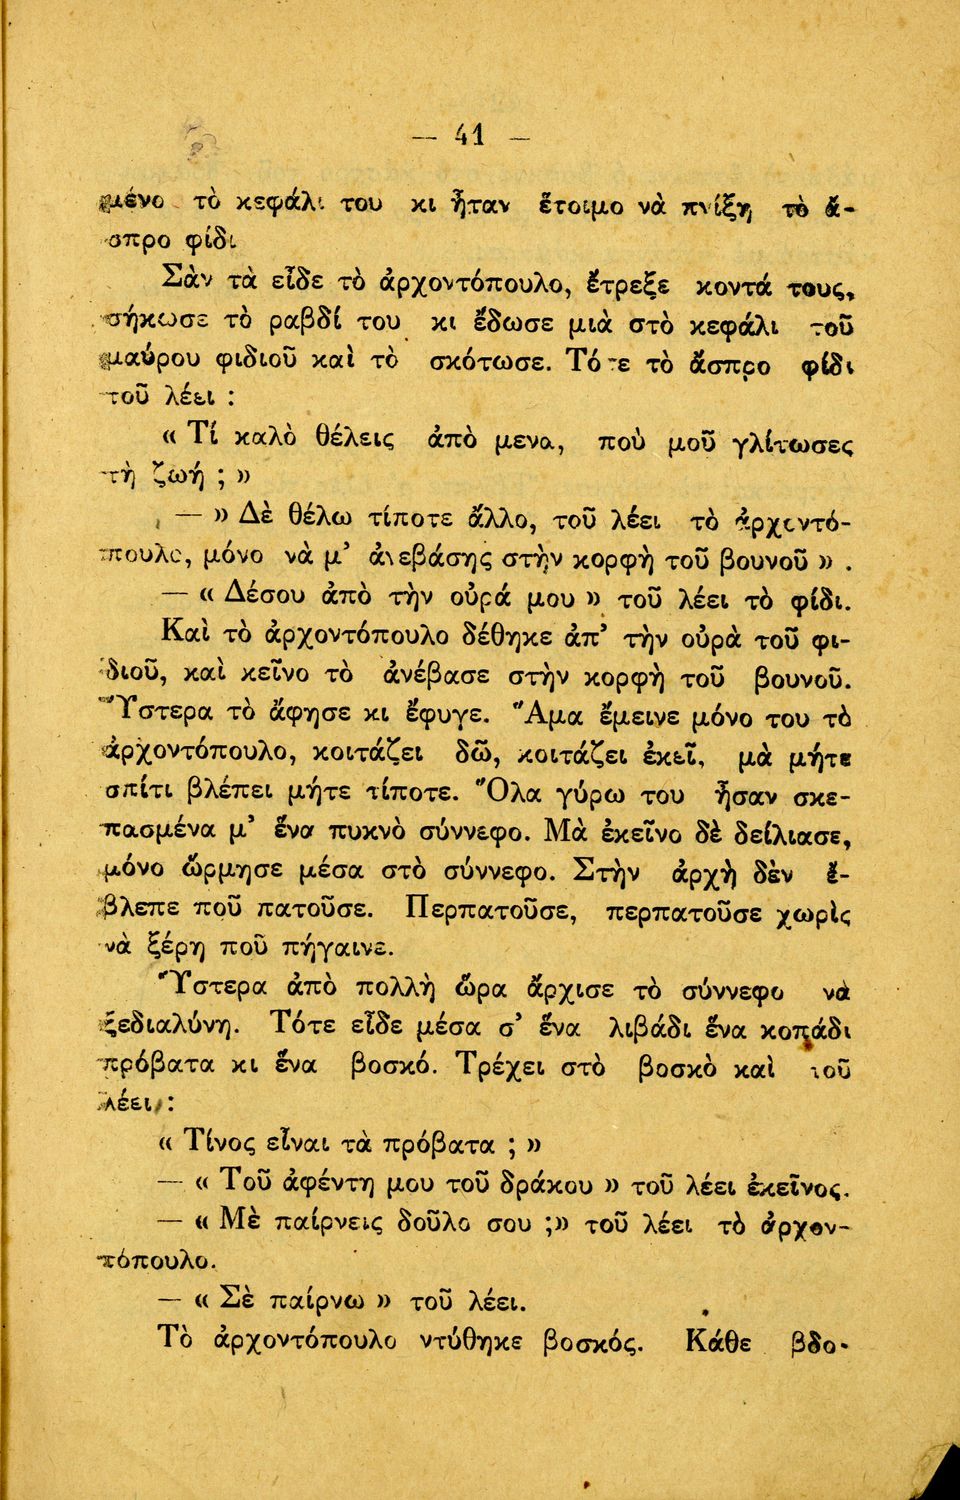 — 41 —
μένο τὸ κεφάλι του κι ἦταν ἕτοιμο νὰ πνίξῃ τὸ ἄ-
σπρο φίδι
Σὰν τὰ εἶδε τὸ ἀρχοντόπουλο, ἔτρεξε κοντά τους,
σήκωσε τὸ ραβδί του κι ἔδωσε μιὰ στὸ κεφάλι τοῦ
μαύρου φιδιοῦ καὶ τὸ σκότωσε. Τότε τὸ ἄσπρο φίδι
τοῦ λέει :
« Τί καλὸ θέλεις ἀπὸ μενα, ποὺ μοῦ γλίτωσες
τὴ ζωή ; »
— » Δὲ θέλω τίποτε ἄλλο, τοῦ λέει τὸ ἀρχοντό-
πουλο, μόνο νὰ μ’ ἀνεβάσης στὴν κορφὴ τοῦ βουνοῦ » .
— « Δέσου ἀπὸ τὴν οὐρά μου » τοῦ λέει τὸ φίδι.
Καὶ τὸ ἀρχοντόπουλο δέθηκε ἀπ’ τὴν οὐρὰ τοῦ φι-
διοῦ, καὶ κεῖνο τὸ ἀνέβασε στὴν κορφὴ τοῦ βουνοῦ.
Ὕστερα τὸ ἄφησε κι ἔφυγε. Ἅμα ἔμεινε μόνο του τὸ
ἀρχοντόπουλο, κοιτάζει δῶ, κοιτάζει ἐκεῖ, μὰ μήτε
σπίτι βλέπει μήτε τίποτε. Ὅλα γύρω του ἦσαν σκε-
πασμένα μ’ ἕνα πυκνὸ σύννεφο. Μὰ ἐκεῖνο δὲ δείλιασε,
μόνο ὥρμησε μέσα στὸ σύννεφο. Στὴν ἀρχὴ δὲν ἔ-
βλεπε ποῦ πατοῦσε. Περπατοῦσε, περπατοῦσε χωρὶς
νὰ ξέρη ποῦ πήγαινε.
Ὕστερα ἀπὸ πολλὴ ὥρα ἄρχισε τὸ σύννεφο νὰ
ξεδιαλύνη. Τότε εἶδε μέσα σ’ ἕνα λιβάδι ἕνα κοπάδι
πρόβατα κι ἕνα βοσκό. Τρέχει στὸ βοσκὸ καὶ τοῦ
λέει :
« Τίνος εἶναι τὰ πρόβατα ; »
— « Τοῦ ἀφέντη μου τοῦ δράκου » τοῦ λέει ἐκεῖνος.
— « Μὲ παίρνεις δοῦλο σου ;» τοῦ λέει τὸ ἀρχον-
τόπουλο.
— « Σὲ παίρνω » τοῦ λέει.
Τὸ ἀρχοντόπουλο ντύθηκε βοσκός. Κάθε βδο-